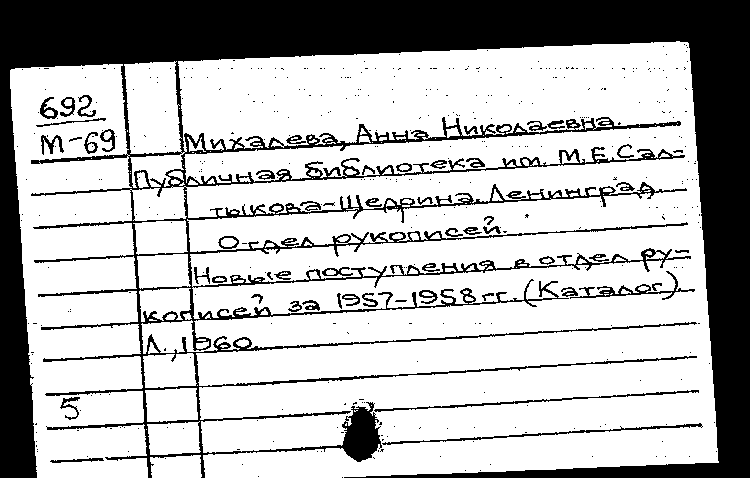 692
М-69
Михалева, Анна Николаевна.
Публичная библиотека им. М.Е.Сал=
тыкова-Щедрина. Ленинград.
Отдел рукописей.
Новые поступления в отдел ру-
кописей за 1957-1958 гг. (Каталог)
Л., 1960.
5